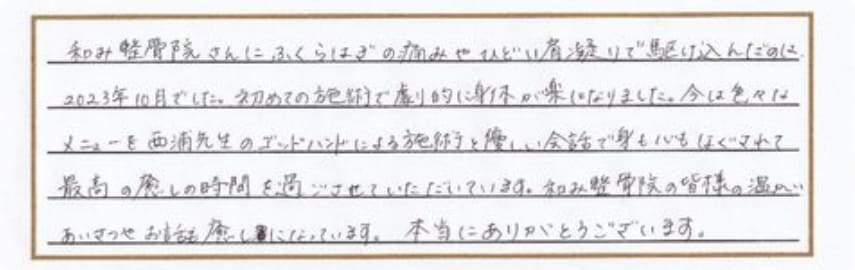 和み整骨院さんにふくらはぎの痛みやひどい肩凝りで駆け込んだのは、
2023年10月でした。初めての施術で劇的に身体が楽になりました。今は色々な
メニューを西浦先生のゴッドハンドによる施術と優しい会話で身も心もほぐされて
最高の癒しの時間を過ごさせていただいています。和み整骨院の皆様の温かい
あいさつやお話も癒しになっています。本当にありがとうございます。